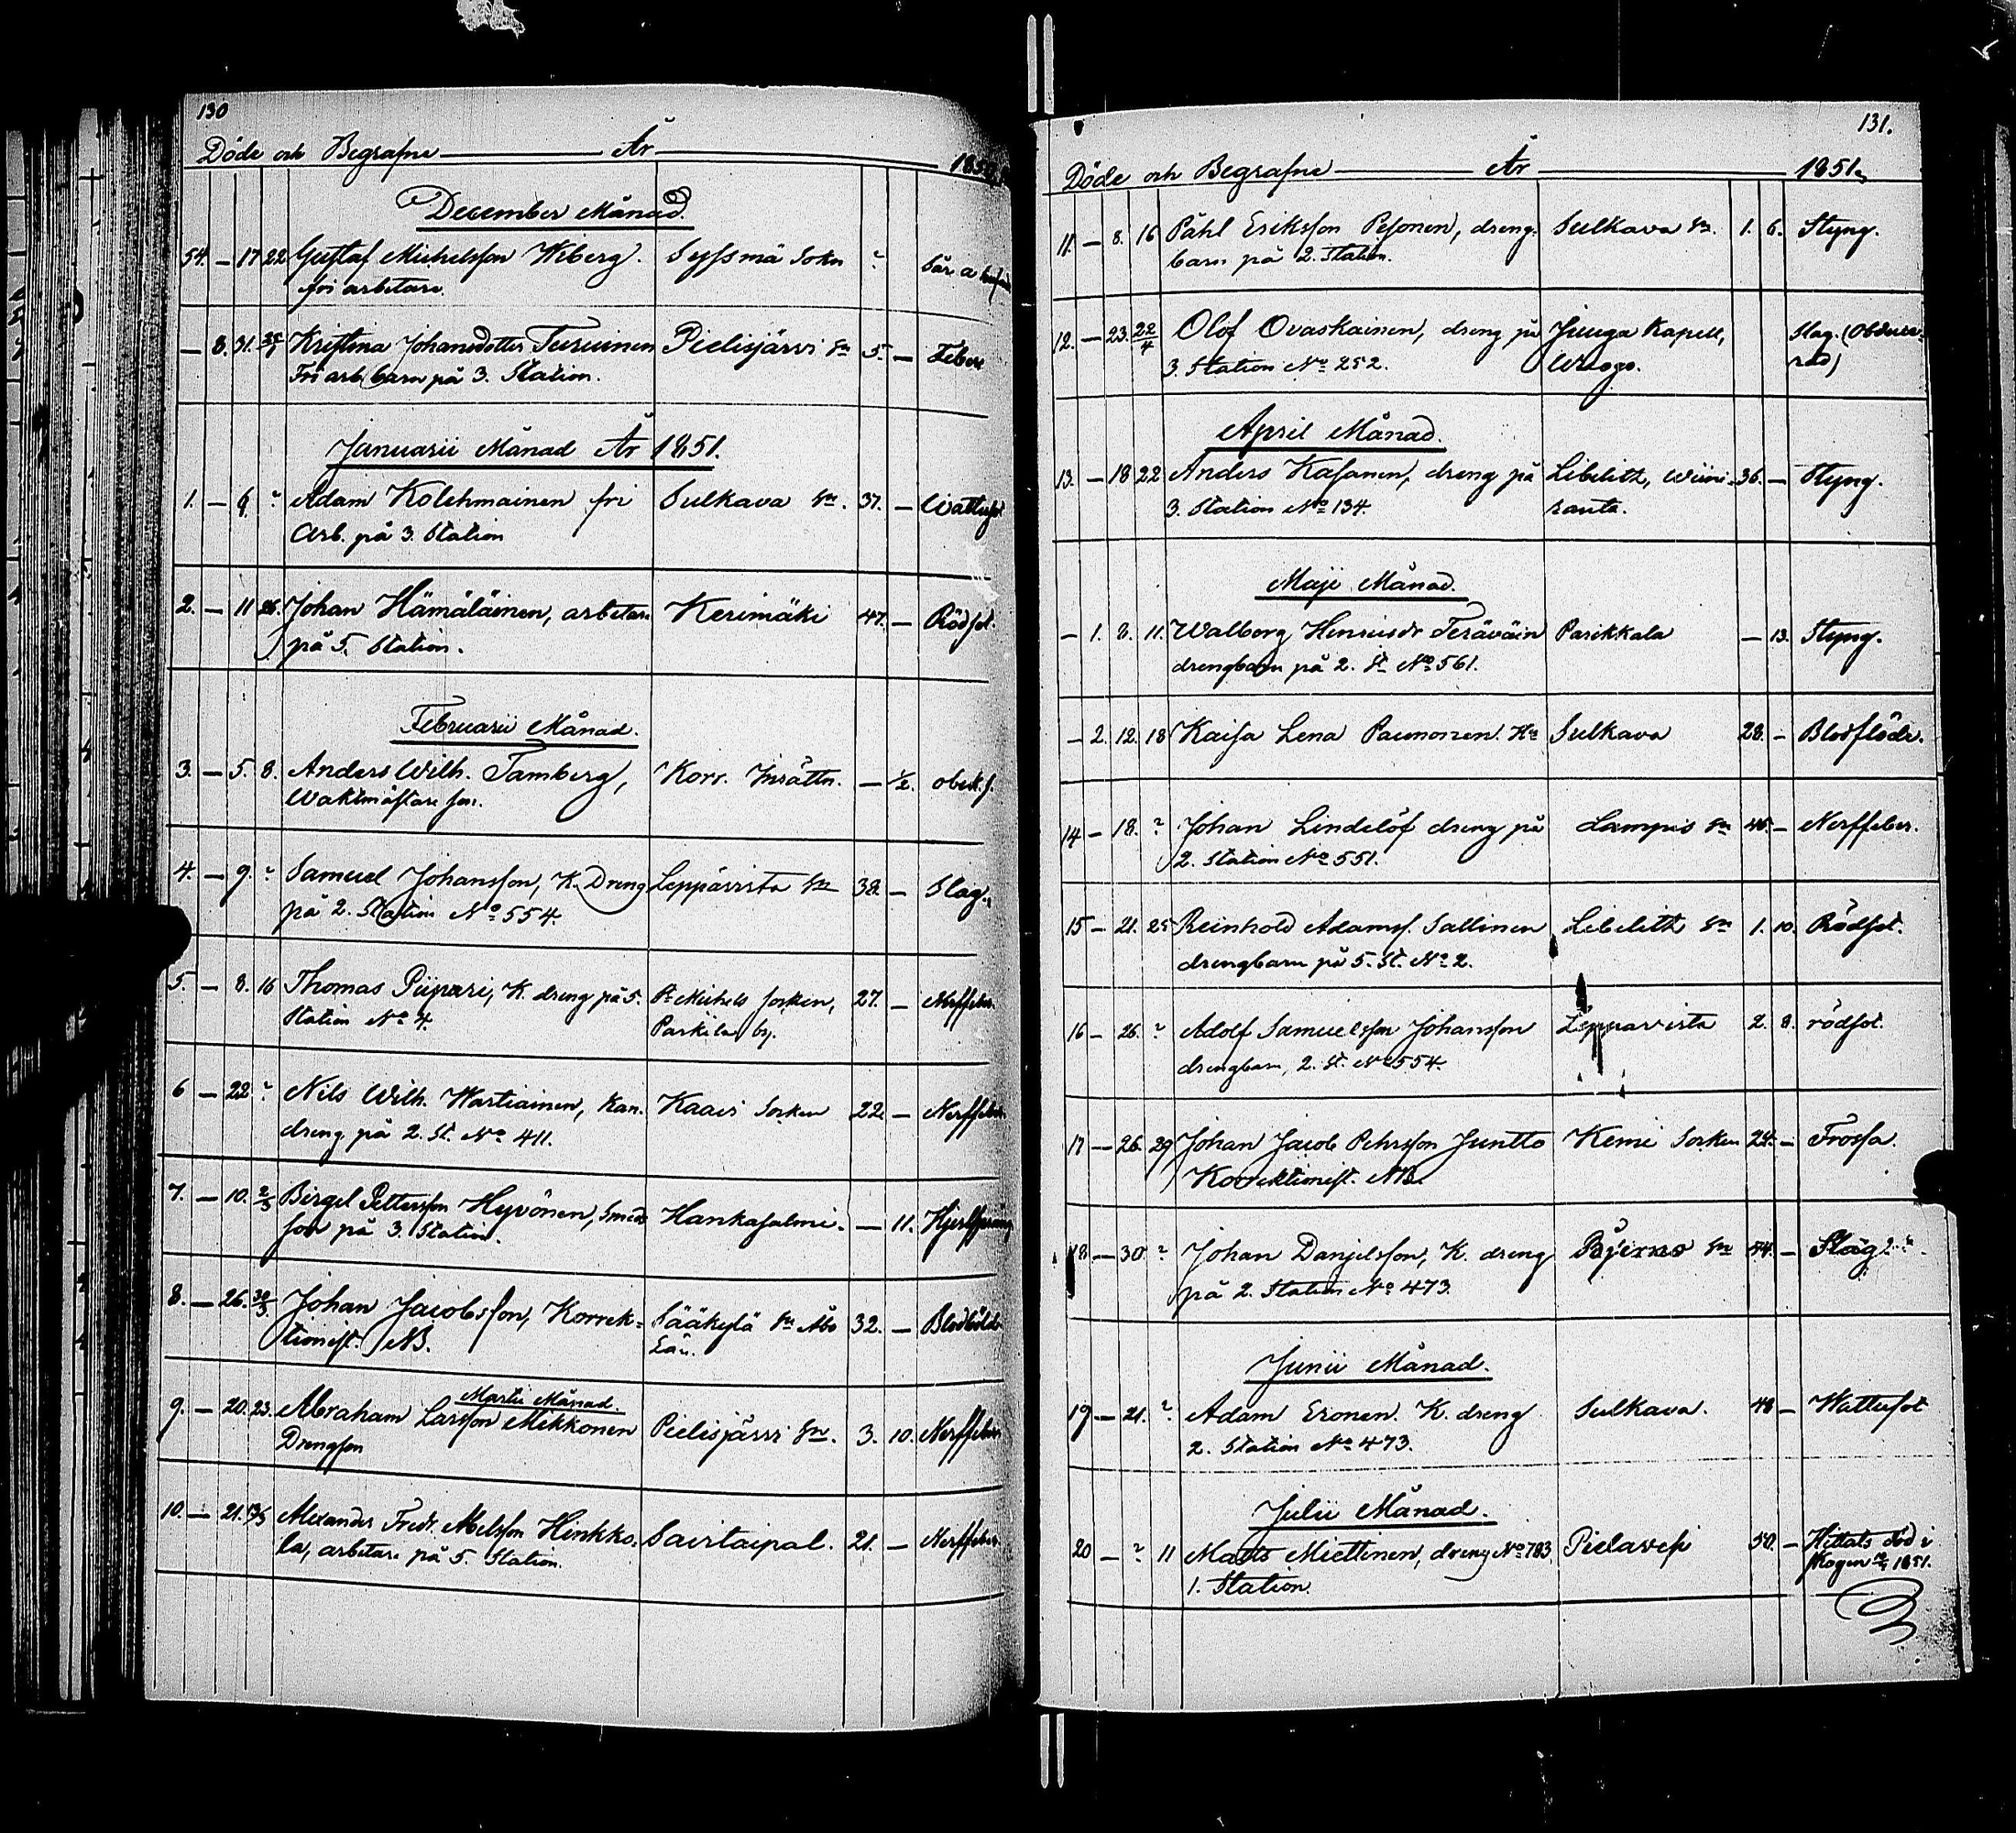 130
Döde och Begrafne År 1850
December Månad.
54. — 17 22 Gustaf Michelsson Wiberg. Syssmä Sokn ? Sår a
fri arbetare.
— 8. 31. Kristina Johansdotter Turuinen Pielisjärvi Sn 5. — Feber
Fri arb. barn på 3. Station.
Januarii Månad År 1851.
1. — 6. ? Adam Kolehmainen fri Sulkava Sn. 37. — Wattusot
Arb. på 3. Station
2. — 11 26. Johan Hämäläinen, arbetare Kerimäki 47. — Rödsot.
på 5. Station.
Februarii Månad.
3. — 5. 8. Anders Wilh. Tamberg, Korr. Inrättn. — 1/2. obek. s.
Waktmästare son.
4. — 9. ? Samuel Johansson, K. Dreng Leppävirta Sn 38. — Slag.
på 2. Station No 554.
5. — 8. 16 Thomas Piipari, K. dreng på 5. St Michels socken, 27. — Nerffeber.
Station No 4. Parkila by.
6 — 22 ? Nils Wilh. Wartiainen, kan. Kaavi Socken 22 — Nerffeber
dreng på 2. St. No 411.
7. — 10. 2/3 Birgel Pettersson Hyvönen, Smeds Hankasalmi. — 11. Hjertsprång
son på 3. Station.
8. — 26. 30/3 Johan Jacobsson, Korrek= Sääkylä Sn Åbo 32. — Blodstört
tionist. NB. Län.
Martii Månad.
9. — 20. 23. Abraham Larsson Mekkonen Pielisjärvi Sn. 3. 10. Nerffeber
Drengson
10. — 21. 13/5 Alexander Fredr. Abelsson Hinkko. Savitaipal. 21. — Nerffeber
la, arbetare på 5. Station.
131.
Döde och Begrafne År 1851.
11. — 8. 16 Påhl Eriksson Pesonen, dreng. Sulkava Sn. 1. 6. Styng.
barn på 2. Station.
12. — 23. 22/4 Olof Ovaskainen, dreng på Juuga Kapell, Slag. (Obduce-
3. Station No 252. rad)
April Månad.
13. — 18 22 Anders Kasanen, dreng på Libelitz, Wiini- 36. — Styng.
3. Station No 134. ranta.
Maji Månad.
— 1. 8. 11. Walborg Henricsdr Teräväin Parikkala — 13. Styng.
drengbarn på 2. St No 561.
— 2. 12. 18 Kaisa Lena Paunonen. Hu Sulkava 28. — Blodflöde.
14 — 18. ? Johan Lindelöf dreng på Lampis Sn 46. — Nerffeber.
2. Station No 551.
15 — 21. 25 Reinhold Adamss. Sallinen Libelitz Sn 1. 10. Rödsot.
drengbarn på 5. St. No 2.
16 — 26. ? Adolf Samuelsson Johansson Leppävirta 2. 8. rödsot.
drengbarn, 2. St. No 554.
17 — 26. 29 Johan Jacob Pehrsson Juntto Kemi Socken 24. — Frossa.
Korrektionist. NB.
18 — 30 ? Johan Danjelsson, K. dreng Bjerno Sn 54. — Slag
på 2. Station No 473.
Junii Månad.
19 — 21. ? Adam Eronen. K. dreng Sulkava. 48 — Wattusot
2. Station No 473.
Julii Månad.
20 — ? 11 Matts Miettinen, dreng No 783. Pielavesi 50. — Hittats död i
1. Station. skogen 1851.